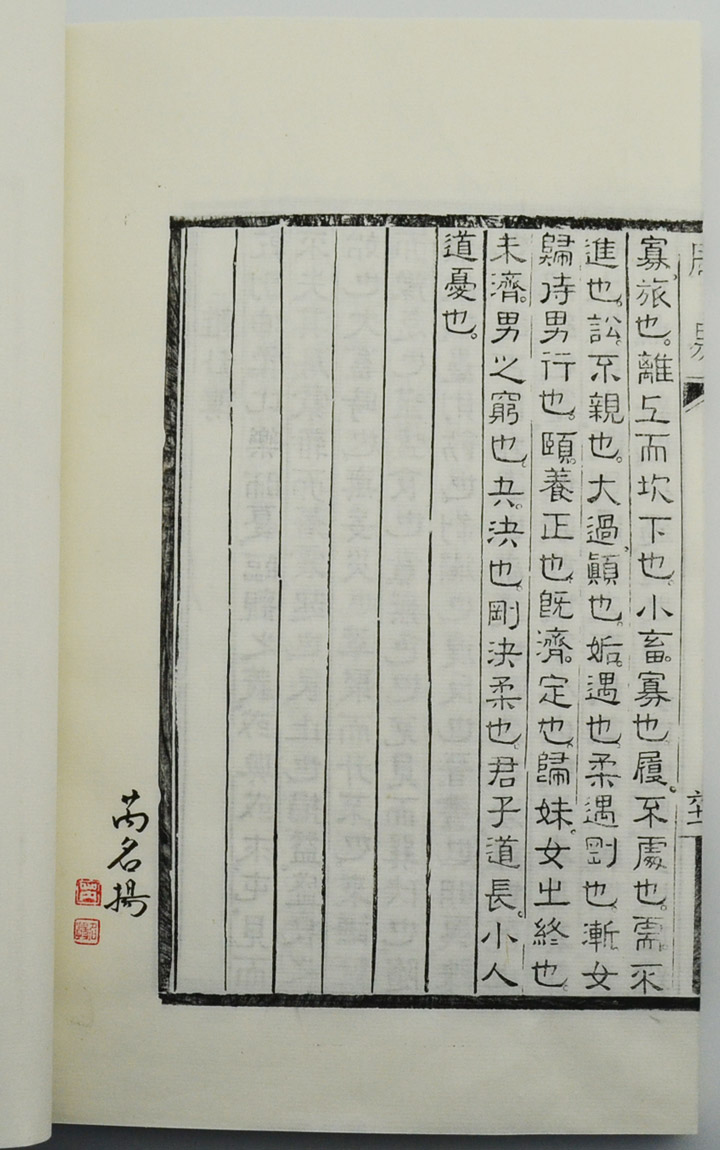 周易
六十一
寡旅也。離上而坎下也。小畜。寡也。履。不處也。需。不
進也。訟。不親也。大過。顛也。姤。遇也。柔遇剛也。漸女
歸待男行也。頤。養正也。既濟。定也。歸妹。女之終也。
未濟。男之窮也。夬。決也。剛決柔也。君子道長。小人
道憂也。
芮名揚